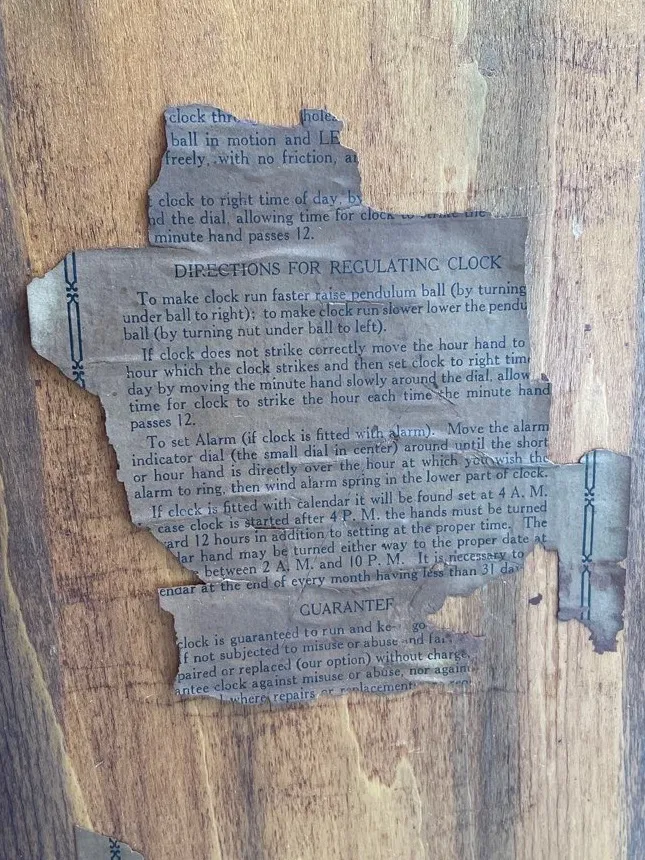 clock thr hole
ball in motion and LE
freely, with no friction, a
clock to right time of day, by
nd the dial, allowing time for clock to strike the
minute hand passes 12.
DIRECTIONS FOR REGULATING CLOCK
To make clock run faster raise pendulum ball (by turning
under ball to right); to make clock run slower lower the pendu
ball (by turning nut under ball to left).
If clock does not strike correctly move the hour hand to
hour which the clock strikes and then set clock to right time
day by moving the minute hand slowly around the dial, allow
time for clock to strike the hour each time the minute hand
passes 12.
To set Alarm (if clock is fitted with alarm). Move the alarm
indicator dial (the small dial in center) around until the short
or hour hand is directly over the hour at which you wish the
alarm to ring, then wind alarm spring in the lower part of clock.
If clock is fitted with calendar it will be found set at 4 A. M.
case clock is started after 4 P. M. the hands must be turned
ard 12 hours in addition to setting at the proper time. The
dar hand may be turned either way to the proper date at
between 2 A. M. and 10 P. M. It is necessary to
endar at the end of every month having less than 31 da
GUARANTEE
clock is guaranteed to run and ke go
f not subjected to misuse or abuse and
paired or replaced (our option) without charge
antee clock against misuse or abuse, nor again
where repairs or replacement